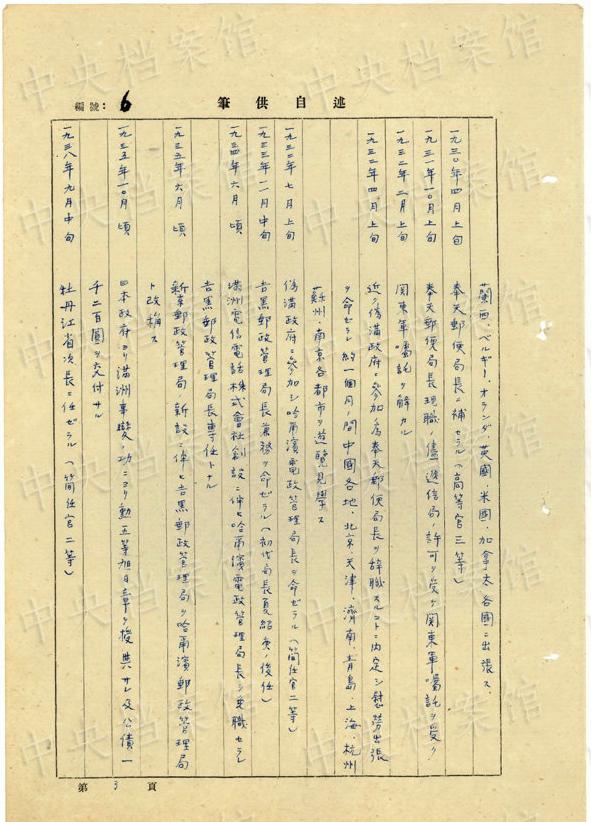 編號: 6
筆供自述
蘭西、ベルギー、オランダ、英國、米國、加拿太各國ニ出張ス、
一九三〇年四月上旬 奉天郵便局長ニ補セラル(高等官三等)
一九三一年一〇月上旬 奉天郵便局長現職ノ儘遞信局ノ許可ヲ受ケ関東軍囑託ヲ受ク
一九三二年二月上旬 関東軍囑託ヲ解カル
一九三二年四月上旬 近ク偽満政府ニ参加ノ為奉天郵便局長ヲ辞職スルコトニ内定シ慰勞出張
ヲ命ゼラレ約一個月ノ間中國各地、北京、天津、濟南、青島、上海、杭州
蘇州、南京各都市ヲ遊覧見學ス
一九三二年七月上旬 偽満政府ニ参加シ哈爾濱電政管理局長ヲ命ゼラル(簡任官二等)
一九三三年一一月中旬 吉黒郵政管理局長兼務ヲ命ゼラル(初代局長夏紹庚ノ後任)
一九三四年六月頃 満洲電信電話株式會社創設ニ伴ヒ哈爾濱電政管理局長ヲ免職セラレ
吉黒郵政管理局長專任トナル
一九三五年六月頃 新京郵政管理局ノ新設ニ伴ヒ吉黒郵政管理局ヲ哈爾濱郵政管理局
ト改稱ス
一九三五年一〇月頃 日本政府ヨリ満洲事變ノ功ニヨリ勳五等旭日章ヲ授與サレ及公債一
千二百圓ヲ交付サル
一九三八年九月中旬 牡丹江省次長ニ任ゼラル(簡任官二等)
第 3 頁
中央档案馆